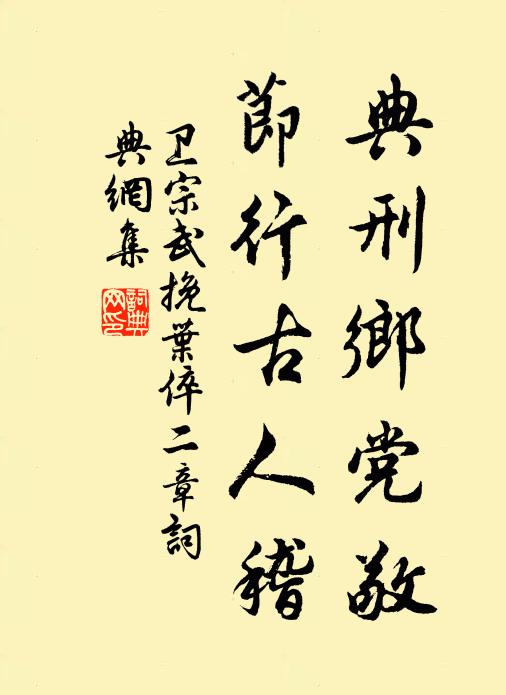 典刑鄉党敬
節行古人稽
卫宗武挽葉倅二章詞
典網集
詞典网印